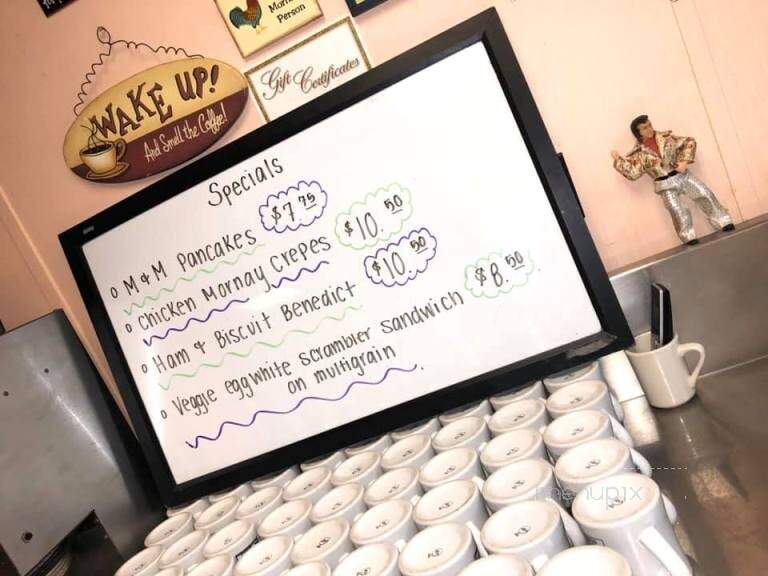 Morning
Person
Gift Certificates
WAKE UP!
And Smell the Coffee!
Specials
o M & M Pancakes $7.75
o Chicken Mornay Crepes $10.50
o Ham & Biscuit Benedict $10.50
o Veggie eggwhite scrambler sandwich $8.50
on multigrain
menupix